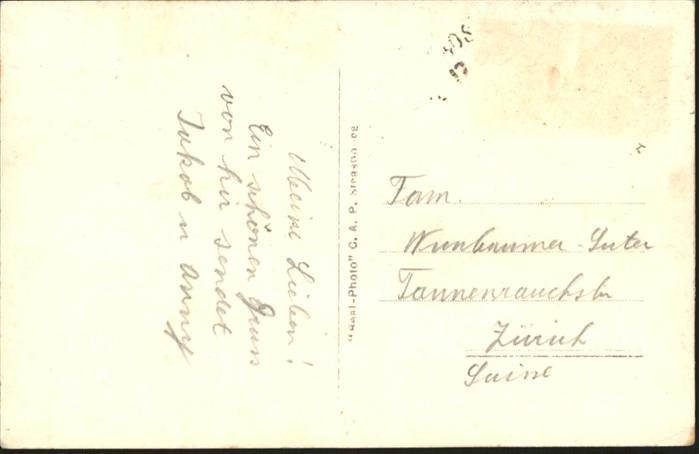 Meine Lieben!
Ein schönen Gruss
von hir sendet
Jakob u Anny
"Real-Photo" C. A. P. Strasbourg
Fam.
Suter
Tannenrauchstr
Zürich
Suisse